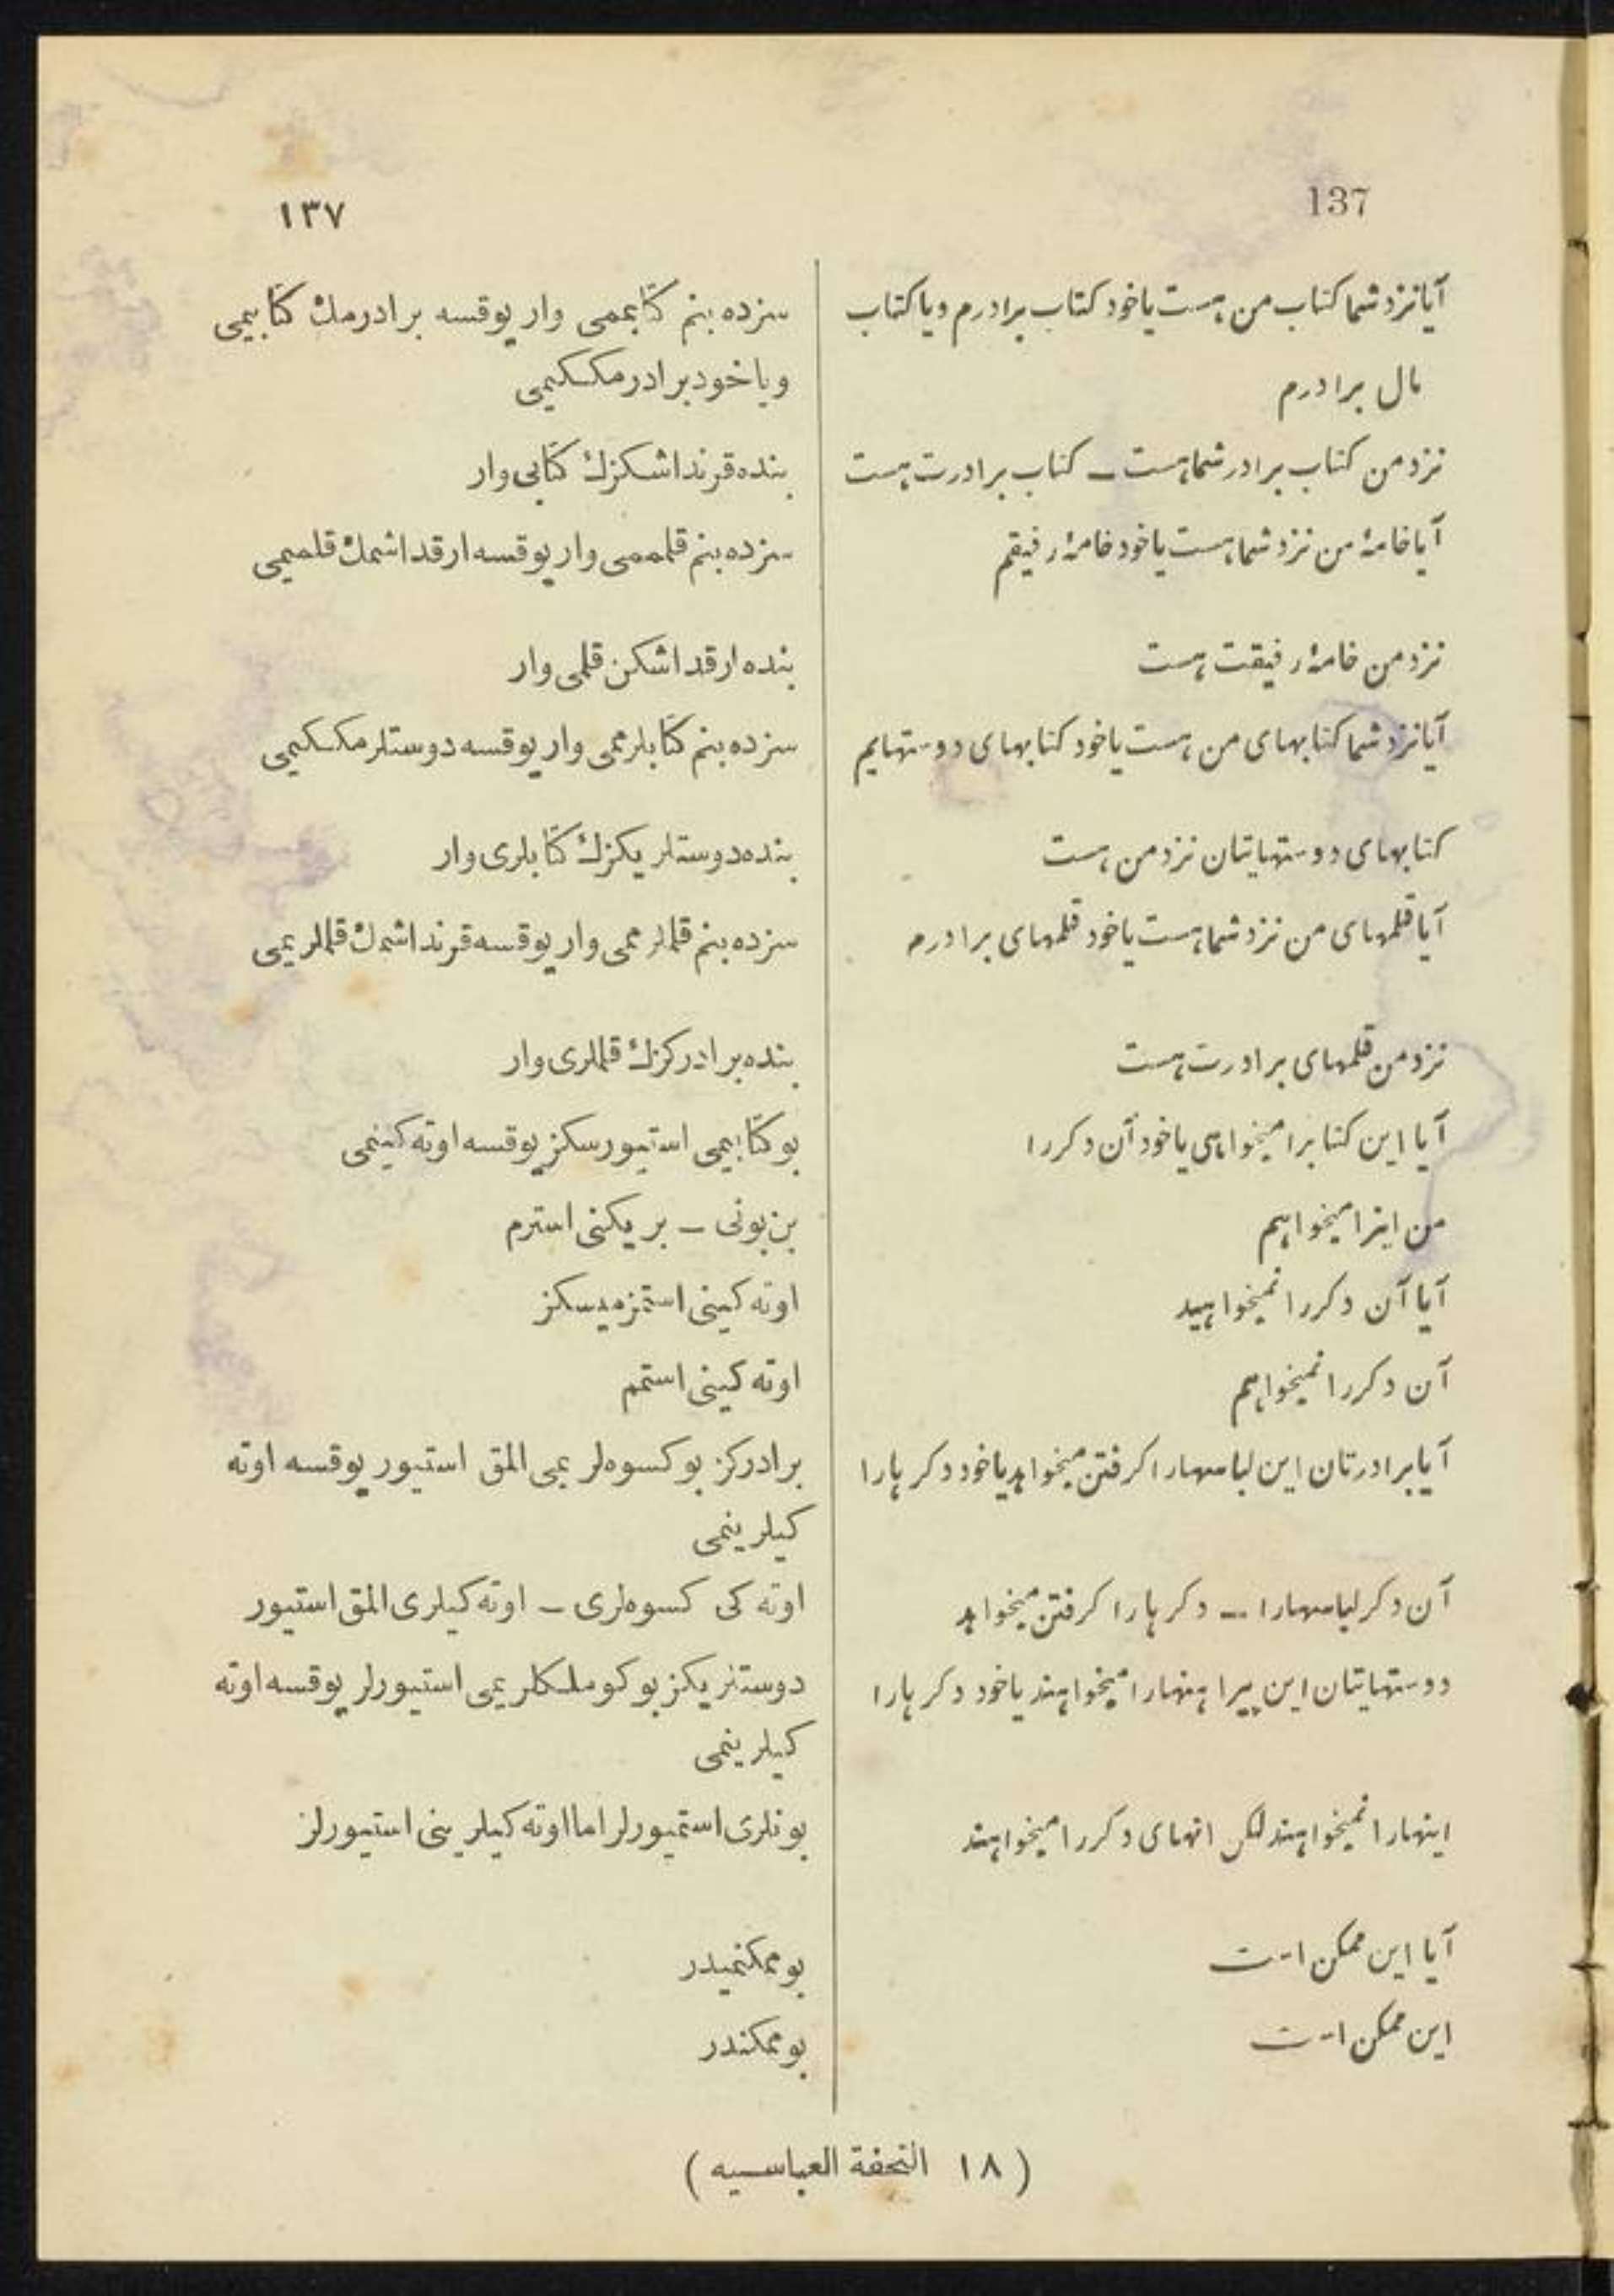 137
١٣٧
آیا نزد شما کتاب من هست یا خود کتاب برادرم ویا کتاب
مال برادرم
نزد من کتاب برادر شما هست ـ کتاب برادرت هست
آیا خامهٔ من نزد شما هست یا خود خامهٔ رفیقم
نزد من خامهٔ رفیقت هست
آیا نزد شما کتابهای من هست یا خود کتابهای دوستهایم
کتابهای دوستهایتان نزد من هست
آیا قلمهای من نزد شما هست یا خود قلمهای برادرم
نزد من قلمهای برادرت هست
آیا این کتابرا میخواهی یا خود آن دکررا
من اینرا میخواهم
آیا آن دکررا نمیخواهید
آن دکررا نمیخواهم
آیا برادرتان این لباسهارا کرفتن میخواهد یا خود دکرهارا
آن دکر لباسهارا ـ دکرهارا کرفتن میخواهد
دوستهایتان این پیراهنهارا میخواهند یا خود دکرهارا
اینهارا نمیخواهند لکن انهای دکررا میخواهند
آیا این ممکن است
این ممکن است
سزده بنم کتابممی وار یوقسه برادرمك کتابیمی
ویاخود برادرمککیمی
بنده قرنداشکزك کتابی وار
سزده بنم قلممی وار یوقسه ارقداشمك قلمیمی
بنده ارقداشکن قلمی وار
سزده بنم کتابلرممی وار یوقسه دوستلرمککیمی
بنده دوستلریکزك کتابلری وار
سزده بنم قلملرممی وار یوقسه قرنداشمك قلملریمی
بنده برادرکزك قلملری وار
بو کتابیمی استیورسکز یوقسه اوته کینیمی
بن بونی ـ بریکنی استرم
اوته کینی استمزمیسکز
اوته کینی استمم
برادرکز بو کسوه‌لریمی المق استیور یوقسه اوته
کیلرینمی
اوته کی کسوه‌لری ـ اوته کیلری المق استیور
دوستلریکز بو کوملکلریمی استیورلر یوقسه اوته
کیلرینمی
بونلری استمیورلر اما اوته کیلرینی استیورلر
بو ممکنمیدر
بو ممکندر
( ١٨ التحفة العباسیه )